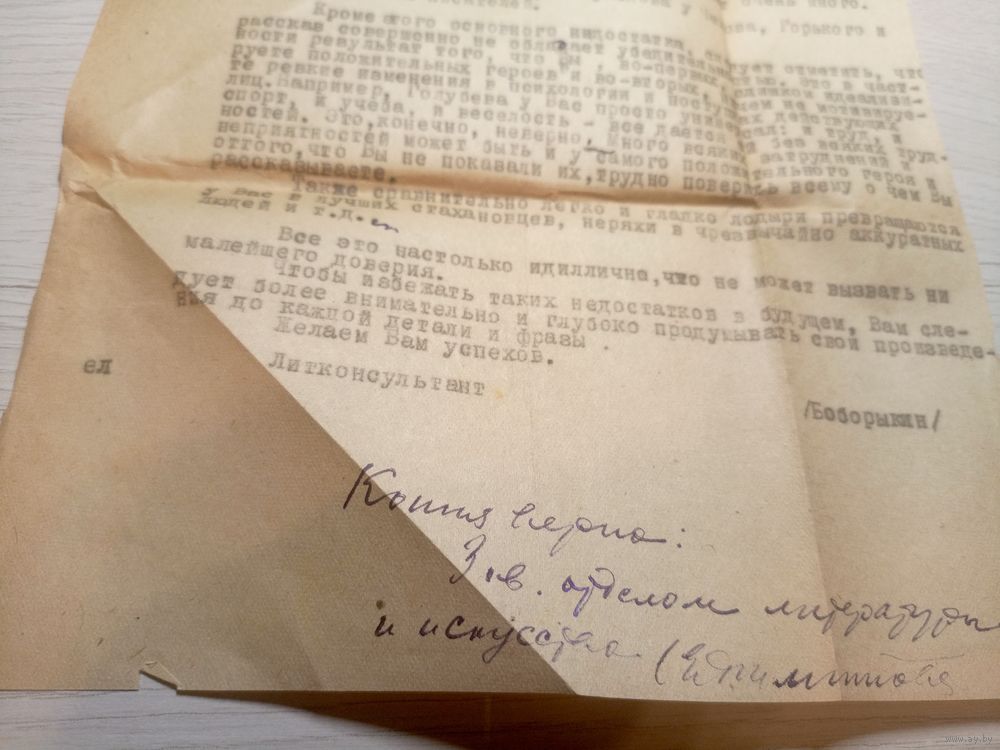 писателей.
очень много.
Горького и
Кроме этого основного недостатка, следует отметить, что
рассказ совершенно не обладает убедительностью. Это в част-
ности результат того, что Вы во-первых слишком идеализи-
руете положительных героев и во-вторых ничем не мотивируе-
те резкие изменения в психологии и поступках действующих
лиц. Например, Голубева у Вас просто
спорт, и учеба, и веселость - все дается без всяких труд-
ностей. Это, конечно, неверно. Много всяких затруднений и
неприятностей может быть и у самого положительного героя и
оттого, что Вы не показали их, трудно поверить всему о чем Вы
рассказываете.
Также сравнительно легко и гладко лодыри превращаются
у Вас в лучших стахановцев, неряхи в чрезвычайно аккуратных
людей и т.д.
Все это настолько идиллично, что не может вызвать ни
малейшего доверия.
Чтобы избежать таких недостатков в будущем, Вам сле-
дует более внимательно и глубоко продумывать свои произведе-
ния до каждой детали и фразы.
Желаем Вам успехов.
Литконсультант
/Боборыкин/
ел
Копия верна:
Зав. отделом литературы
и искусства
www.ay.by